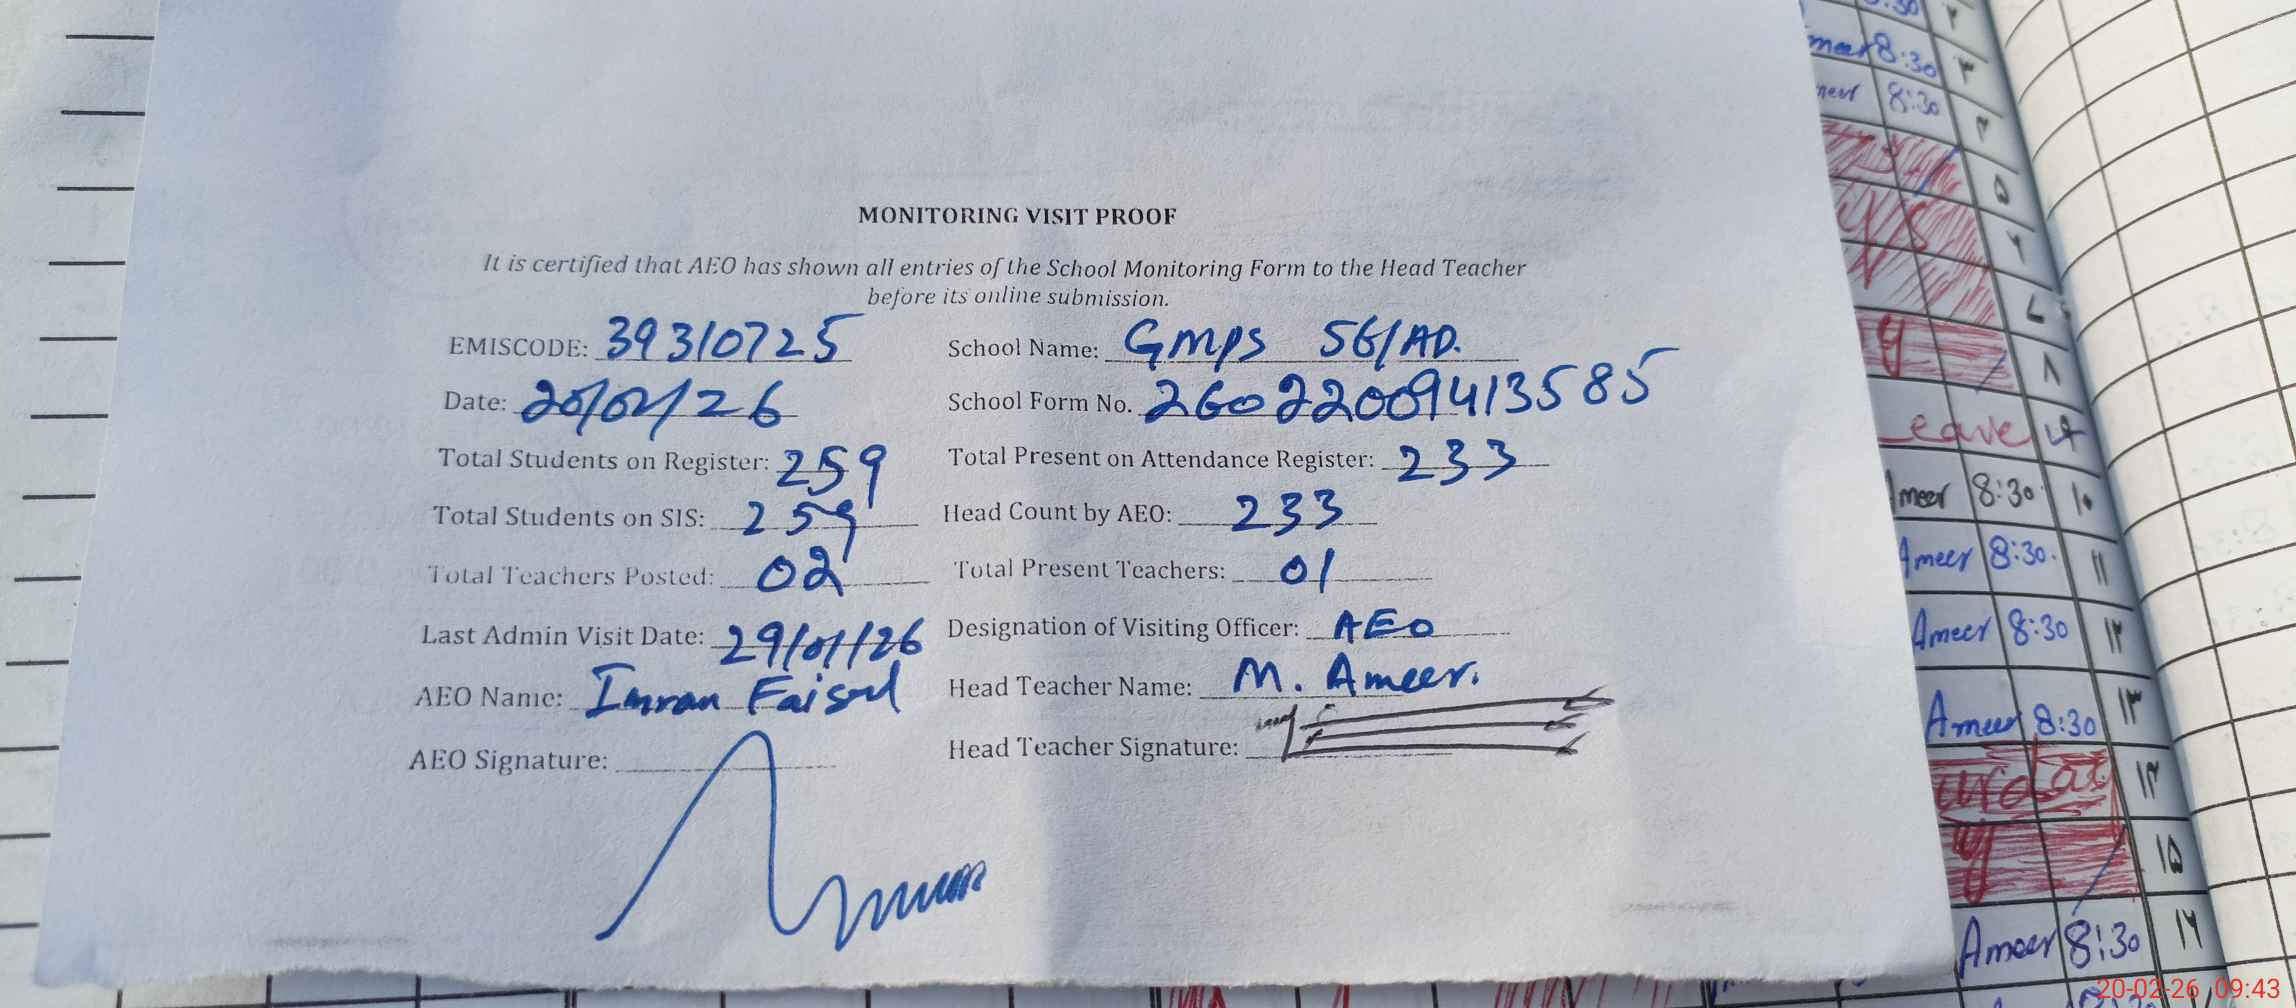 MONITORING VISIT PROOF
It is certified that AEO has shown all entries of the School Monitoring Form to the Head Teacher
before its online submission.
EMISCODE: 39310725 School Name: GMPS 56/AD.
Date: 20/02/26 School Form No. 26022009413585
Total Students on Register: 259 Total Present on Attendance Register: 233
Total Students on SIS: 259 Head Count by AEO: 233
Total Teachers Posted: 02 Total Present Teachers: 01
Last Admin Visit Date: 29/01/26 Designation of Visiting Officer: AEO
AEO Name: Imran Faisal Head Teacher Name: M. Ameer.
AEO Signature: Head Teacher Signature:
8:30 ۲
meer 8:30 ۳
meer 8:30 ۴
۵
۶
۷
y ۸
Leave ۹
Ameer 8:30 ۱۰
Ameer 8:30 ۱۱
Ameer 8:30 ۱۲
Ameer 8:30 ۱۳
urday ۱۴
y ۱۵
Ameer 8:30 ۱۶
20-02-26 09:43